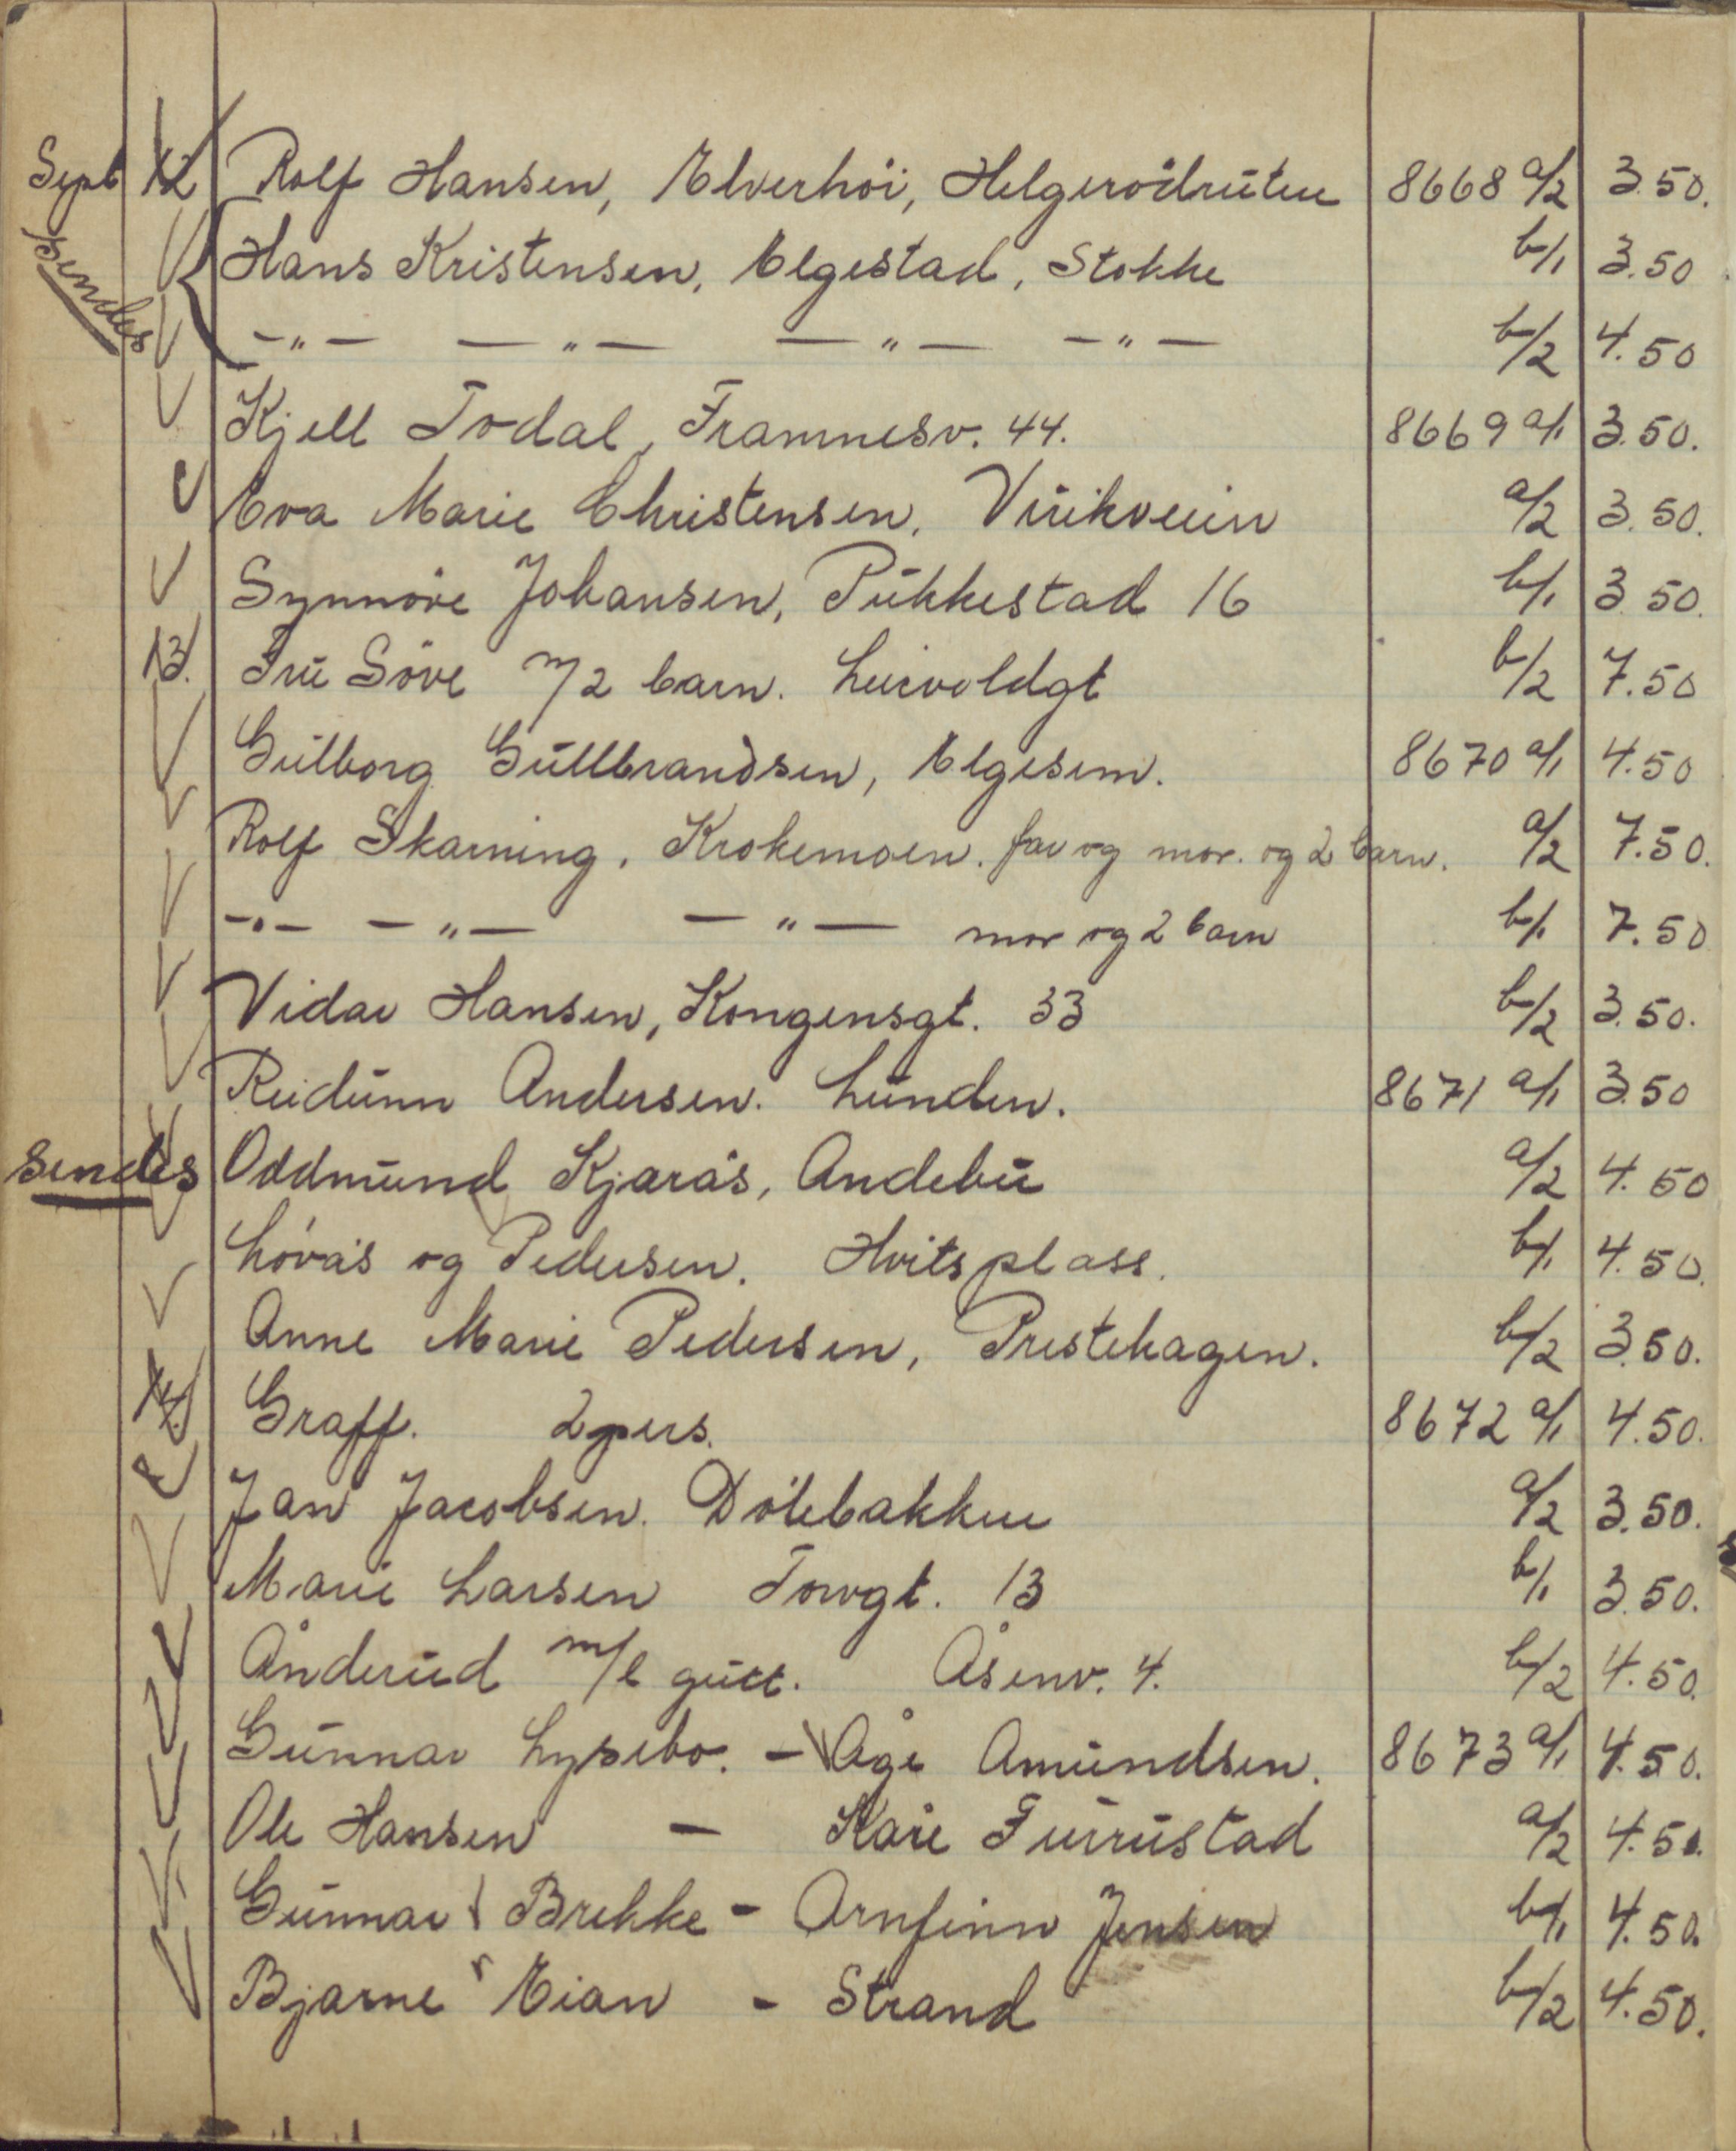 Sept 12 Rolf Hansen, Elverhöi, Helgerödruten 8668 a/2 3.50.
sendes Hans Kristensen, Elgestad, Stokke b/1 3.50
-"- -"- -"- -"- b/2 4.50
Kjell Todal, Framnesv. 44. 8669 a/1 3.50.
Eva Marie Christensen. Virikveien a/2 3.50.
Synnöve Johansen, Pukkestad 16 b/1 3.50.
13. Fru Söve m/2 barn. Leirvoldgt b/2 7.50
Gulborg Gullbrandsen, Elgesem. 8670 a/1 4.50
Rolf Skarning, Krokemoen. far og mor. og 2 barn. a/2 7.50.
-"- -"- -"- mor og 2 barn b/1 7.50
Vidar Hansen, Kongensgt. 33 b/2 3.50.
Reidunn Andersen. Lunden. 8671 a/1 3.50
sendes Oddmund Kjærås, Andebu a/2 4.50
Lövås og Pedersen. Hvitsplass. b/1 4.50.
Anne Marie Pedersen, Prestehagen. b/2 3.50.
14. Graff. 2 pers. 8672 a/1 4.50.
Jan Jacobsen. Dölebakken a/2 3.50.
Marie Larsen Torvgt. 13 b/1 3.50.
Ånderud m/l gutt. Åsenv. 4. b/2 4.50.
Gunnar Lysebo. - Åge Amundsen. 8673 a/1 4.50.
Ole Hansen - Kåre Furrustad a/2 4.50.
Gunnar Brekke - Arnfinn Jensen b/1 4.50.
Bjarne Eian - Strand b/2 4.50.